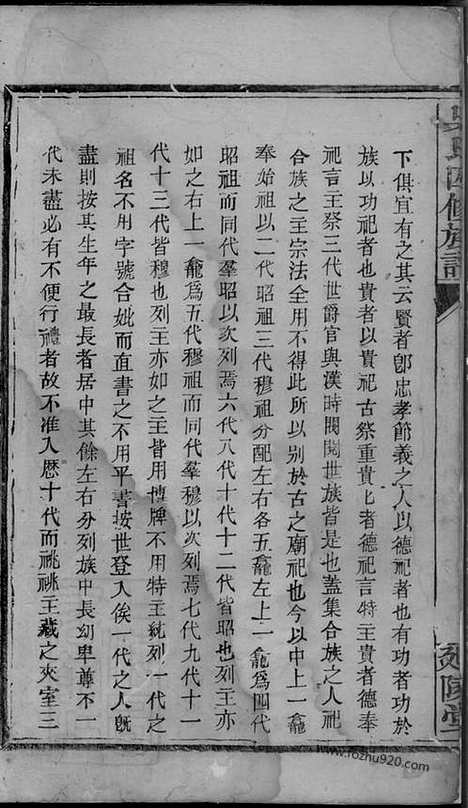 下俱宜有之其云賢者卽忠孝節義之人以德祀者也有功者功於
族以功祀者也貴者以貴祀古祭重貴貴者德祀言特主貴者德奉
祀言主祭三代世爵官與漢時閥閱世族皆是也蓋集合族之人祀
合族之主宗法全用不得此所以别於古之廟祀也今以中上一龕
奉始祖以二代昭祖三代穆祖分配左右各五龕左上一龕爲四代
昭祖而同代羣昭以次列焉六代八代十代十二代皆昭也列主亦
如之右上一龕爲五代穆祖而同代羣穆以次列焉七代九代十一
代十三代皆穆也列主亦如之主皆用博牌不用特主純列一代之
祖名不用字號合妣而直書之不用平書按世登入俟一代之人旣
盡則按其生年之最長者居中其餘左右分列族中長幼卑尊不一
代未盡必有不便行禮者故不准入歷十代而祧祧主藏之夾室三
四修族譜
延陵堂
www.fozhu920.com